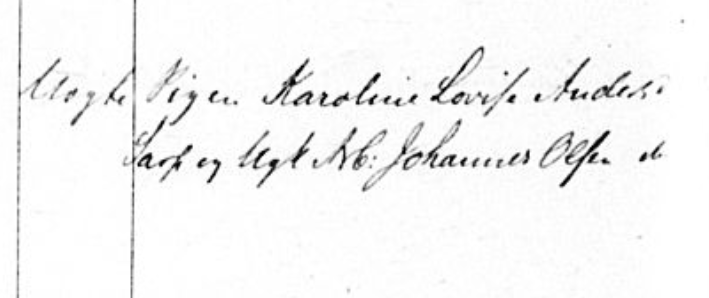 Uægte Pigen Karoline Lovise Anders
Sarp og Ugk Arb: Johannes Olsen